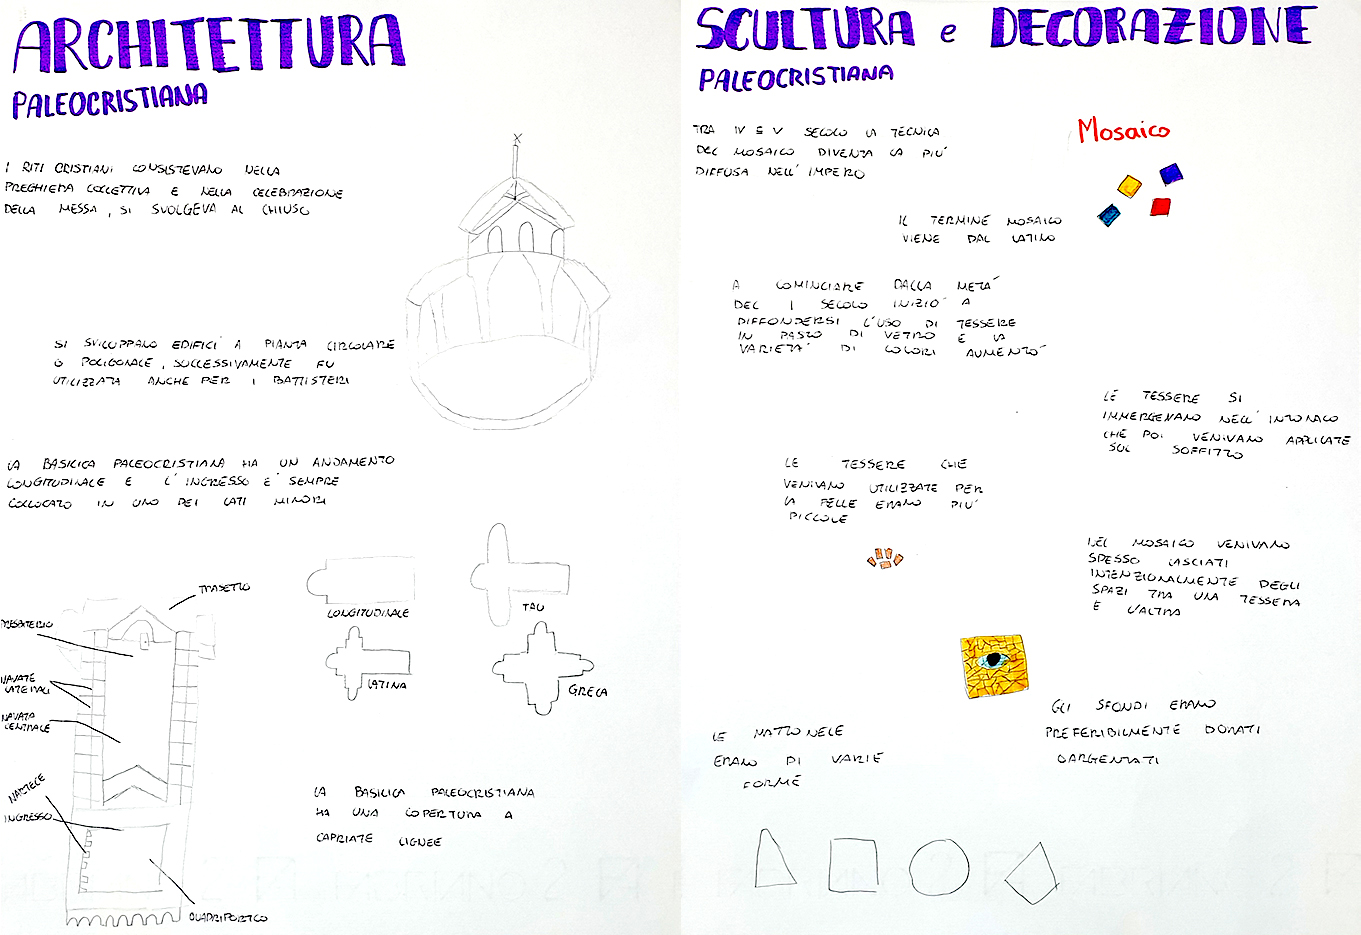 ARCHITETTURA
PALEOCRISTIANA
I RITI CRISTIANI CONSISTEVANO NELLA
PREGHIERA COLLETTIVA E NELLA CELEBRAZIONE
DELLA MESSA, SI SVOLGEVA AL CHIUSO
SI SVILUPPANO EDIFICI A PIANTA CIRCOLARE
O POLIGONALE, SUCCESSIVAMENTE FU
UTILIZZATA ANCHE PER I BATTISTERI
LA BASILICA PALEOCRISTIANA HA UN ANDAMENTO
LONGITUDINALE E L'INGRESSO E' SEMPRE
COLLOCATO IN UNO DEI LATI MINORI
TRASETTO
PRESBITERIO
NAVATE
LATERALI
NAVATA
CENTRALE
NARTECE
INGRESSO
QUADRIPORTICO
LONGITUDINALE
TAU
LATINA
GRECA
LA BASILICA PALEOCRISTIANA
HA UNA COPERTURA A
CAPRIATE LIGNEE
SCULTURA e DECORAZIONE
PALEOCRISTIANA
TRA IV E V SECOLO LA TECNICA
DEL MOSAICO DIVENTA LA PIU'
DIFFUSA NELL'IMPERO
Mosaico
IL TERMINE MOSAICO
VIENE DAL LATINO
A COMINCIARE DALLA META'
DEL I SECOLO INIZIO' A
DIFFONDERSI L'USO DI TESSERE
IN PASTO DI VETRO E LA
VARIETA' DI COLORI AUMENTO'
LE TESSERE SI
IMMERGENANO NELL'INTONACO
CHE POI VENIVANO APPLICATE
SUL SOFFITTO
LE TESSERE CHE
VENIVANO UTILIZZATE PER
LA PELLE ERANO PIU'
PICCOLE
NEL MOSAICO VENIVANO
SPESSO LASCIATI
INTENZIONALMENTE DEGLI
SPAZI TRA UNA TESSERA
E L'ALTRA
GLI SFONDI ERANO
PREFERIBILMENTE DORATI
OARGENTATI
LE MATTONELE
ERANO DI VARIE
FORME